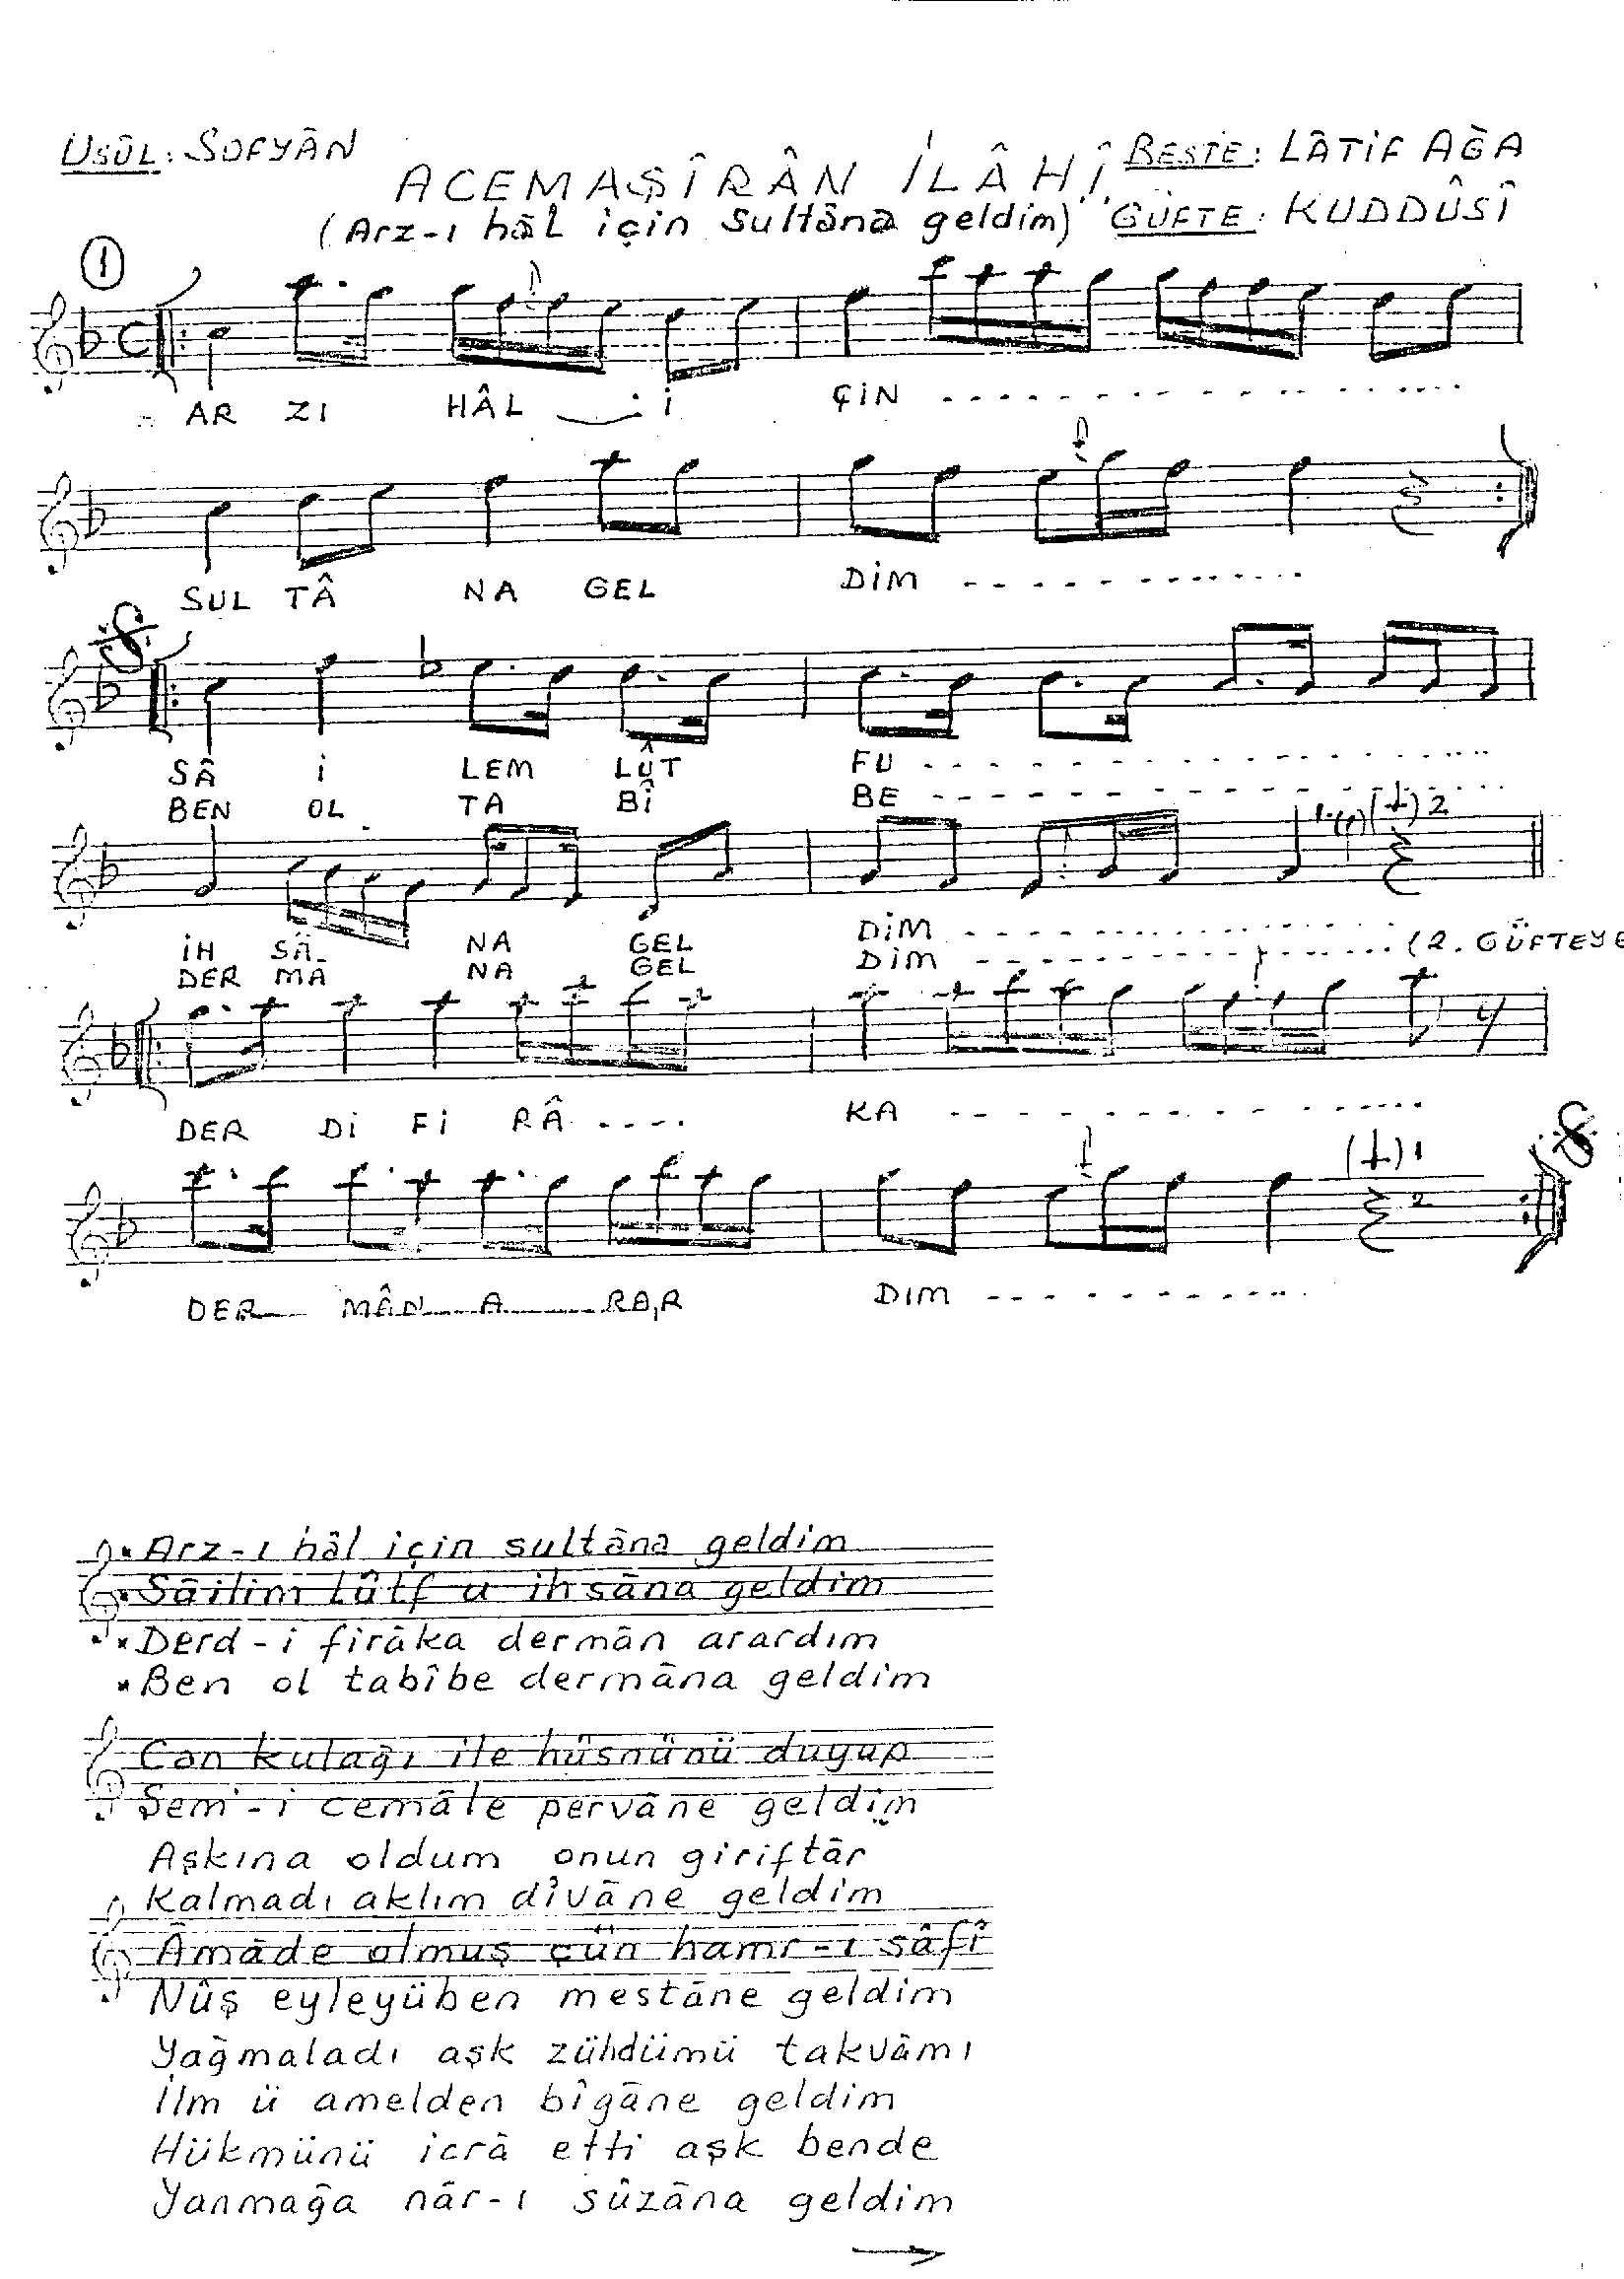 Usûl: SOFYÂN
ACEMAŞÎRÂN İLÂHÎ
BESTE: LÂTİF AĞA
(Arz-ı hâl için Sultâna geldim)
GÜFTE: KUDDÛSÎ
1
AR ZI HÂL İ ÇİN
SUL TÂ NA GEL DİM
SÂ İ LEM LÛT FU
BEN OL TA BÎ BE
1. 2
İH SÂ NA GEL DİM
DER MA NA GEL DİM (2. GÜFTEYE
DER Dİ Fİ RÂ KA
1
2
DER MÂN A RAR DIM
* Arz-ı hâl için sultâna geldim
* Sâilim lûtf u ihsâna geldim
* Derd-i firâka dermân arardım
* Ben ol tabîbe dermâna geldim
Can kulağı ile hüsnünü duyup
Şem'-i cemâle pervâne geldim
Aşkına oldum onun giriftâr
Kalmadı aklım dîvâne geldim
Âmâde olmuş çün hamr-ı sâfî
Nûş eyleyüben mestâne geldim
Yağmaladı aşk zühdümü takvâmı
İlm ü amelden bîgâne geldim
Hükmünü icrâ etti aşk bende
Yanmağa nâr-ı sûzâna geldim